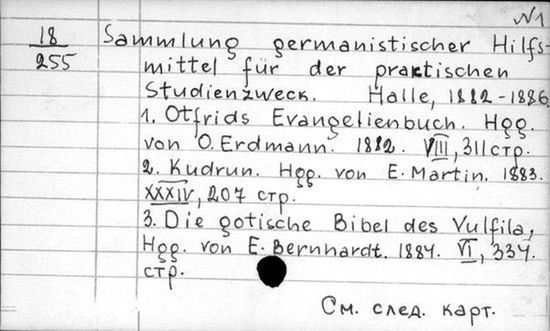 №1
18
255
Sammlung germanistischer Hilfs-
mittel für der praktischen
Studienzweck. Halle, 1882-1886
1. Otfrids Evangelienbuch. Hgg.
von O. Erdmann. 1882. VIII, 311 стр.
2. Kudrun. Hgg. von E. Martin. 1883.
XXXIV, 207 стр.
3. Die gotische Bibel des Vulfila,
Hgg. von E. Bernhardt. 1884. VI, 334.
стр.
См. след. карт.